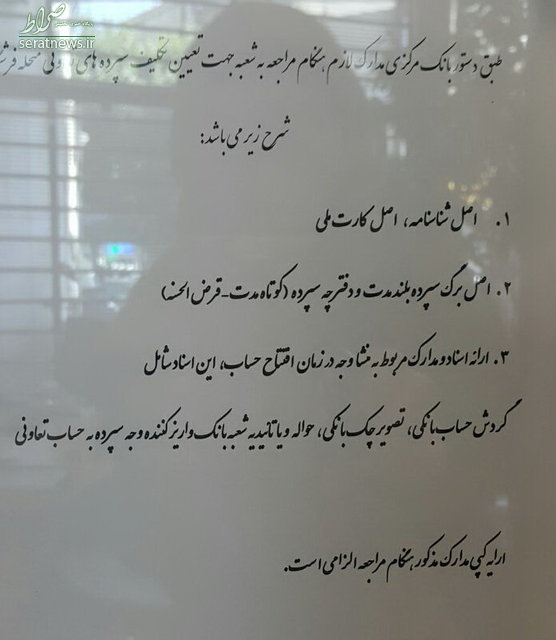 صراط
seratnews.ir
طبق دستور بانک مرکزی مدارک لازم هنگام مراجعه به شعبه جهت تعیین تکلیف سپرده های
شرح زیر می باشد:
۱. اصل شناسنامه، اصل کارت ملی
۲. اصل برگ سپرده بلند مدت و دفترچه سپرده (کوتاه مدت-قرض الحسنه)
۳. ارائه اسناد و مدارک مربوط به منشا وجه در زمان افتتاح حساب، این اسناد شامل
گردش حساب بانکی، تصویر چک بانکی، حواله و یا تائیدیه شعبه بانک واریز کننده وجه سپرده به حساب تعاونی
ارایه کپی مدارک مذکور هنگام مراجعه الزامی است.